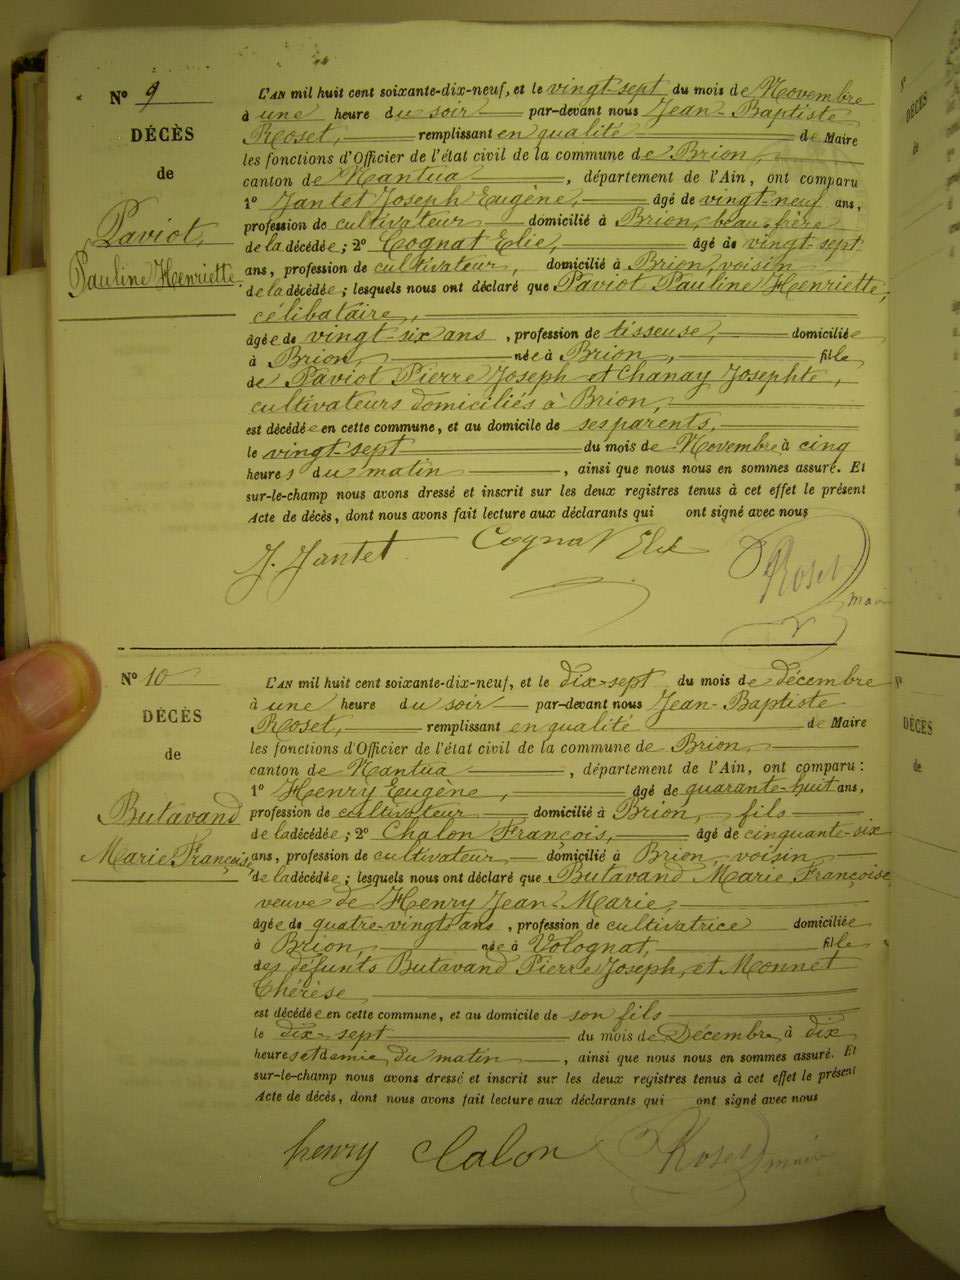 N° 9
DÉCÈS
de
Paviot,
Pauline Henriette
L'AN mil huit cent soixante-dix-neuf, et le vingt-sept du mois de Novembre
à une heure du soir par-devant nous Jean-Baptiste
Roset, remplissant en qualité de Maire
les fonctions d'Officier de l'état civil de la commune de Brion,
canton de Nantua, département de l'Ain, ont comparu
1° Jantet Joseph Eugène, âgé de vingt-neuf ans,
profession de cultivateur domicilié à Brion, beau-frère
de la décédée; 2° Cognat Elie, âgé de vingt-sept
ans, profession de cultivateur, domicilié à Brion, voisin
de la décédée; lesquels nous ont déclaré que Paviot Pauline Henriette,
célibataire,
âgée de vingt-six ans, profession de tisseuse, domiciliée
à Brion, née à Brion, fille
de Paviot Pierre Joseph et Chanay Josephte,
cultivateurs domiciliés à Brion,
est décédée en cette commune, et au domicile de ses parents,
le vingt-sept du mois de Novembre à cinq
heures du matin, ainsi que nous nous en sommes assuré. Et
sur-le-champ nous avons dressé et inscrit sur les deux registres tenus à cet effet le présent
Acte de décès, dont nous avons fait lecture aux déclarants qui ont signé avec nous
J. Jantet Cognat Elie Roset
maire
N° 10
DÉCÈS
de
Butavand
Marie Françoise
L'AN mil huit cent soixante-dix-neuf, et le dix-sept du mois de décembre
à une heure du soir par-devant nous Jean-Baptiste
Roset, remplissant en qualité de Maire
les fonctions d'Officier de l'état civil de la commune de Brion,
canton de Nantua, département de l'Ain, ont comparu :
1° Henry Eugène, âgé de quarante-huit ans,
profession de cultivateur domicilié à Brion, fils
de la décédée; 2° Chalon François, âgé de cinquante-six
ans, profession de cultivateur domicilié à Brion, voisin
de la décédée; lesquels nous ont déclaré que Butavand Marie Françoise,
veuve de Henry Jean-Marie,
âgée de quatre-vingts ans, profession de cultivatrice domiciliée
à Brion, née à Volognat, fille
des défunts Butavand Pierre Joseph, et Monnet
Thérèse
est décédée en cette commune, et au domicile de son fils
le dix-sept du mois de Décembre à dix
heures et demie du matin, ainsi que nous nous en sommes assuré. Et
sur-le-champ nous avons dressé et inscrit sur les deux registres tenus à cet effet le présent
Acte de décès, dont nous avons fait lecture aux déclarants qui ont signé avec nous
henry Calon Roset maire
N°
DÉCÈS
de
N°
DÉCÈS
de